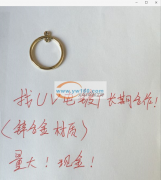 找UV电镀厂长期合作！
（锌合金材质）
量大！现金！